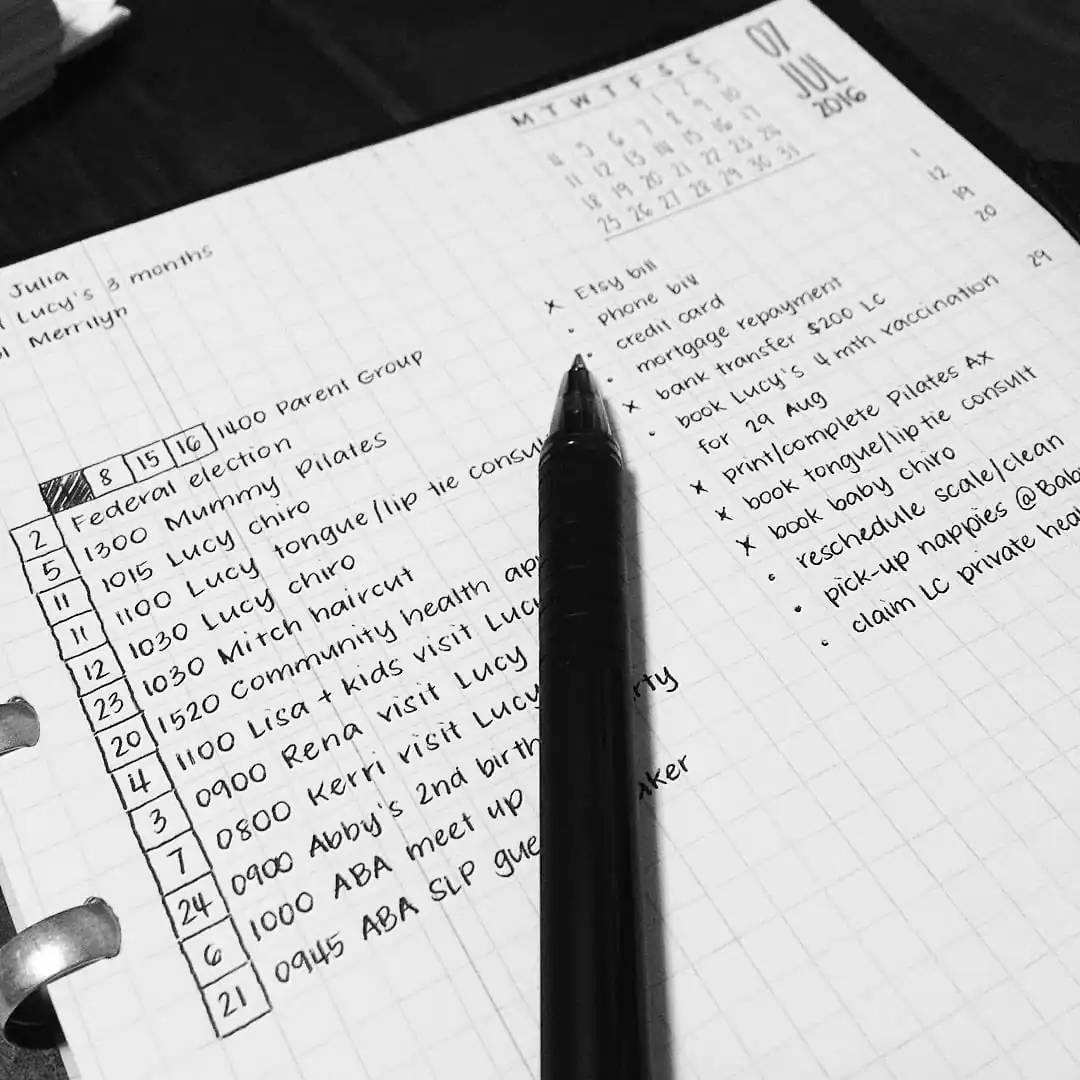 07
JUL
2016
M T W T F S S
1 2 3
4 5 6 7 8 9 10
11 12 13 14 15 16 17
18 19 20 21 22 23 24
25 26 27 28 29 30 31
1
12
19
20
29
Julia
Lucy's 3 months
Merrilyn
8 15 16 1400 Parent Group
2 Federal election
5 1300 Mummy Pilates
11 1015 Lucy chiro
11 1100 Lucy tongue/lip tie
12 1030 Lucy chiro
23 1030 Mitch haircut
20 1520 Community health
4 1100 Lisa + kids visit
3 0900 Rena visit Lucy
7 0800 Kerri visit Lucy
24 0900 Abby's 2nd
6 1000 ABA meet up
21 0945 ABA SLP
x Etsy bill
• phone bill
• credit card
• mortgage repayment
x bank transfer $200 LC
• book Lucy's 4 mth vaccination
for 29 Aug
x print/complete Pilates Ax
x book tongue/lip tie consult
x book baby chiro
• reschedule scale/clean
• pick-up nappies
• claim LC private